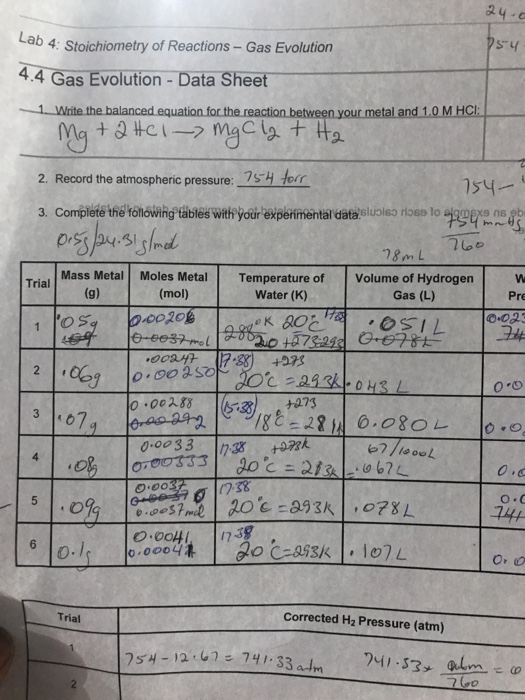 24.
Lab 4: Stoichiometry of Reactions – Gas Evolution
754
4.4 Gas Evolution - Data Sheet
1. Write the balanced equation for the reaction between your metal and 1.0 M HCl:
Mg + 2HCl → MgCl2 + H2
2. Record the atmospheric pressure: 754 torr
754-
3. Complete the following tables with your experimental data.
754 mmHg
760
0.5g/24.31g/mol
78mL
Trial Mass Metal (g) Moles Metal (mol) Temperature of Water (K) Volume of Hydrogen Gas (L)
1 .05g 0.00206 0.0037 mol 288°K 20°C 20+273=293 .051L 0.078L 0.02
2 .06g .00247 0.00250 17.38 +273 20°C = 293K .043 L 0.0
3 .07g 0.00288 0.00292 15.38 +273 18°C = 281K 0.080L 0.0
4 .08g 0.0033 0.00333 17.38 +273K 20°C = 293K 67/1000L = .067L 0.
5 .09g 0.0037 0.0037mol 17.38 20°C = 293K .078L 741
6 0.1g 0.0041 0.0004 17.38 20°C=293K .107L 0.0
Trial Corrected H2 Pressure (atm)
1 754-12.67 = 741.33 atm 741.33 x atm/760 =
2